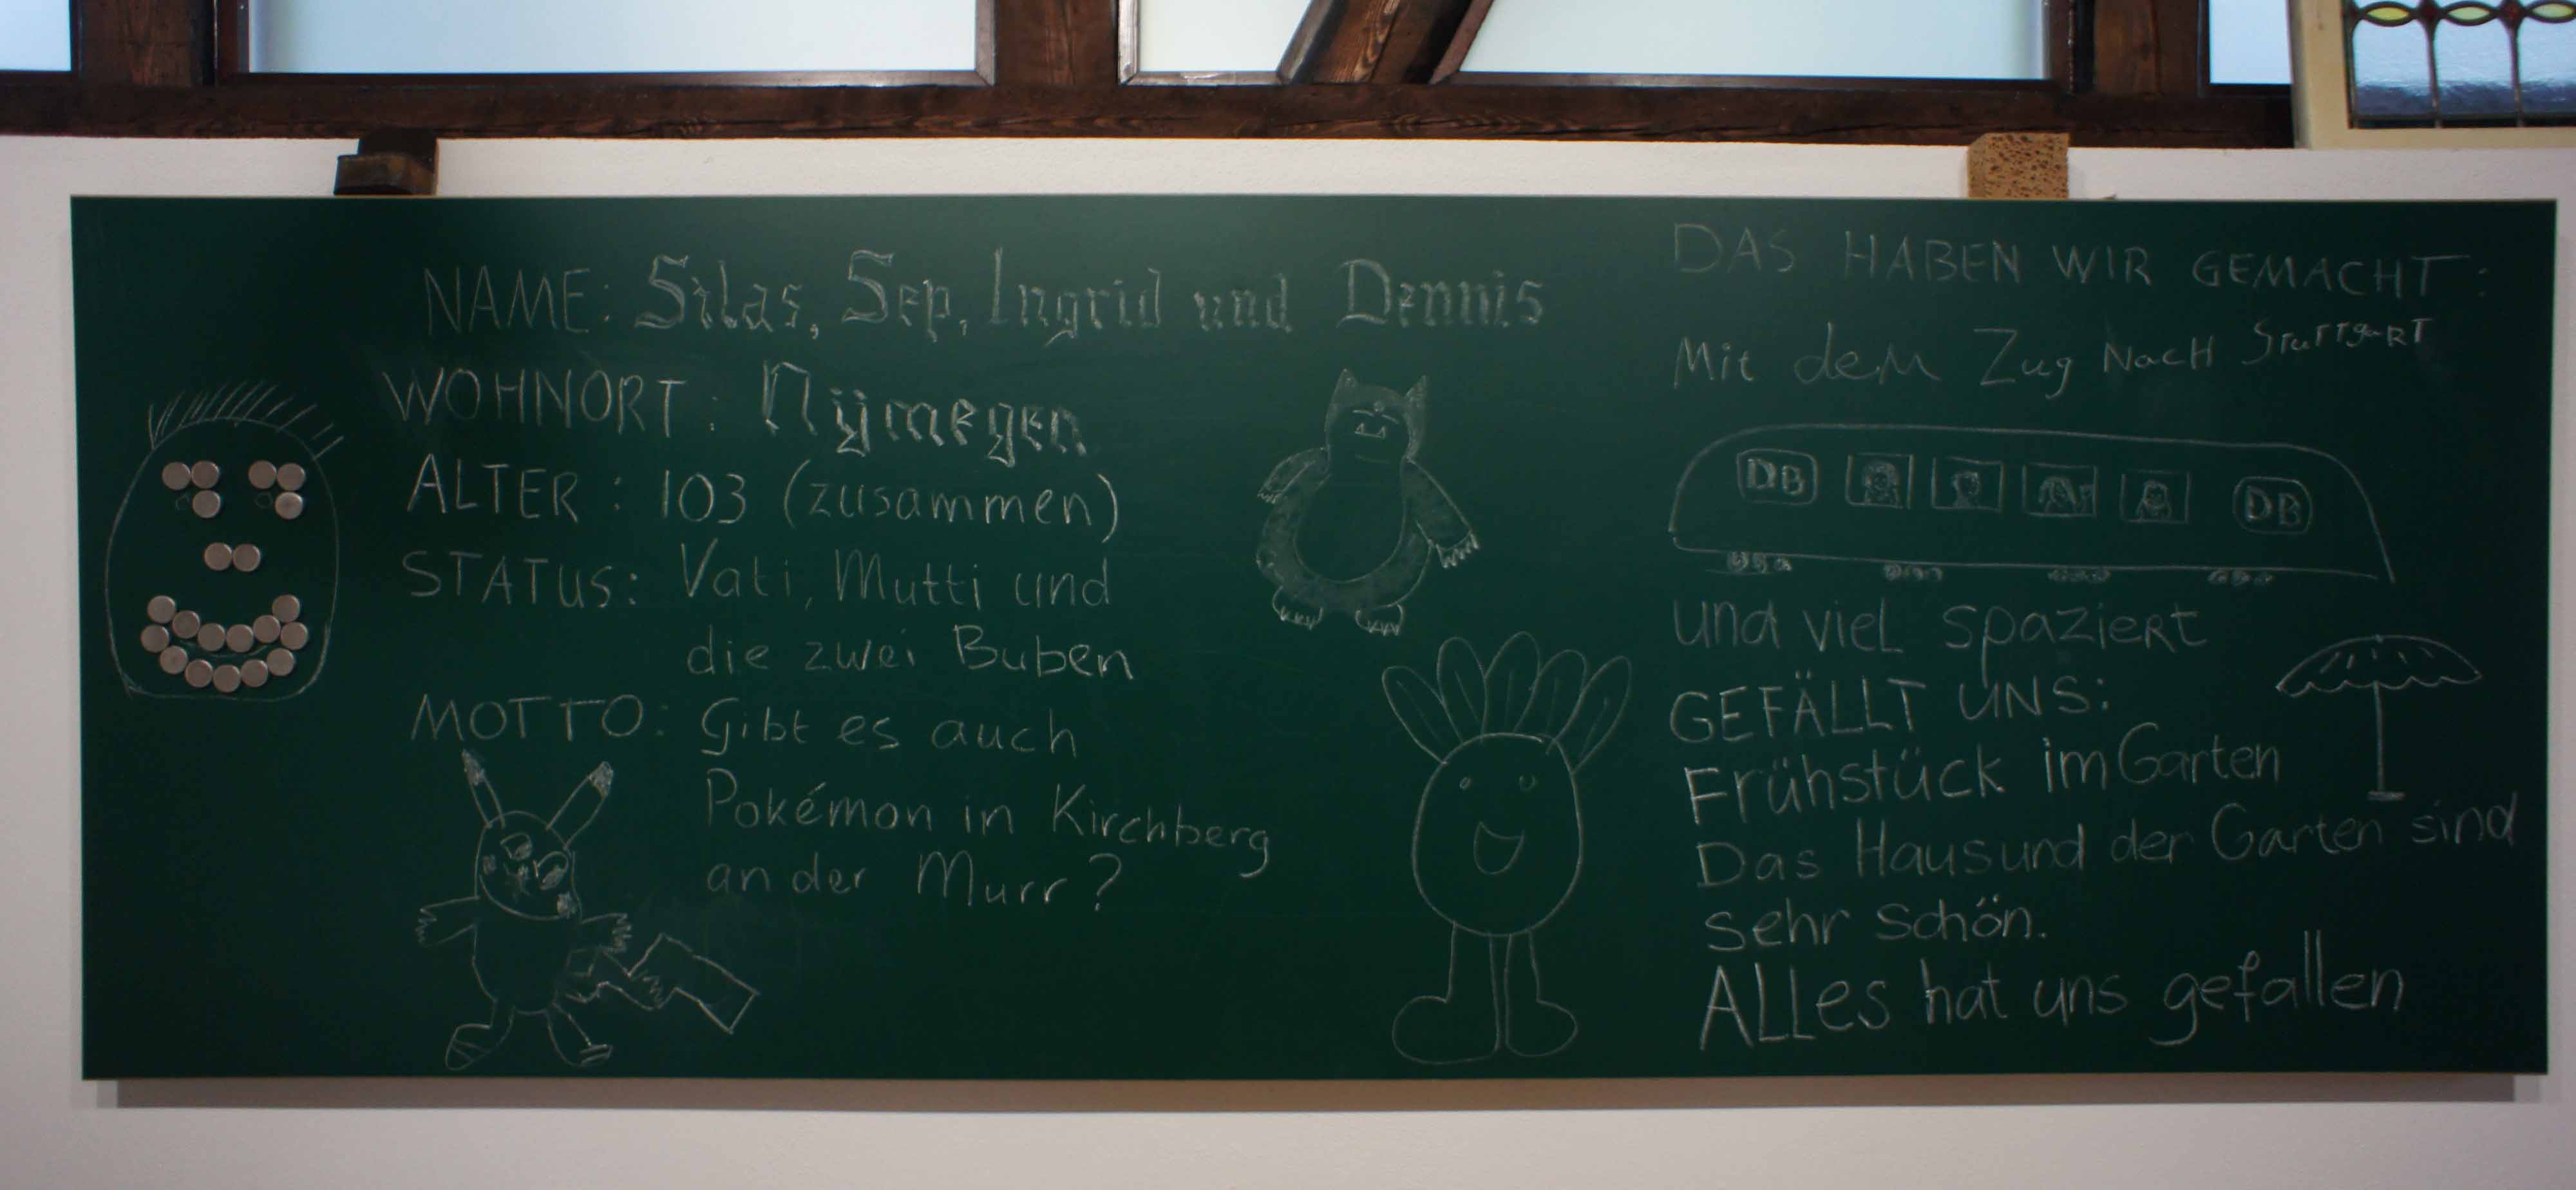 NAME: Silas, Sep, Ingrid und Dennis
WOHNORT: Nijmegen
ALTER: 103 (zusammen)
STATUS: Vati, Mutti und
die zwei Buben
MOTTO: Gibt es auch
Pokémon in Kirchberg
an der Murr?
DAS HABEN WIR GEMACHT:
Mit dem Zug NacH StuttgaRT
DB DB
und vieL spazieRt
GEFÄLLT UNS:
Frühstück im Garten
Das Haus und der Garten sind
sehr schön.
ALLes hat uns gefallen